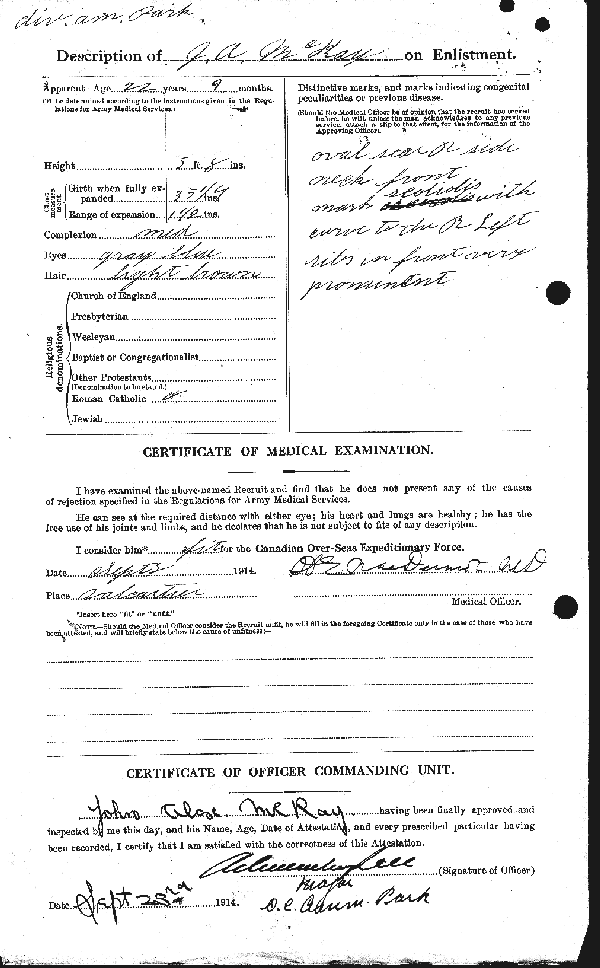 div. am. Park
Description of J A McKay on Enlistment.
Apparent Age 22 years 9 months
(To be determined according to the instructions given in the Regulations for Army Medical Services.)
Height 5 ft. 8 ins.
Chest measurement
Girth when fully expanded ins.
Range of expansion ins.
Complexion med
Eyes gray blue
Hair light brown
Religious denominations.
Church of England
Presbyterian
Wesleyan
Baptist or Congregationalist
Other Protestants
(Denomination to be stated.)
Roman Catholic
Jewish
Distinctive marks, and marks indicating congenital
peculiarities or previous disease.
(Should the Medical Officer be of opinion that the recruit has served
before, he will, unless the man acknowledges to any previous
service, attach a slip to that effect, for the information of the
Approving Officer.)
oval scar R side
neck front
mark scoliosis with
curve to the R Left
ribs in front very
prominent
CERTIFICATE OF MEDICAL EXAMINATION.
I have examined the above-named Recruit and find that he does not present any of the causes
of rejection specified in the Regulations for Army Medical Services.
He can see at the required distance with either eye; his heart and lungs are healthy; he has the
free use of his joints and limbs, and he declares that he is not subject to fits of any description.
I consider him* fit for the Canadian Over-Seas Expeditionary Force.
Date Sept 1914.
Place Valcartier
Medical Officer.
*Insert here "fit" or "unfit."
NOTE.—Should the Medical Officer consider the Recruit unfit, he will fill in the foregoing Certificate only in the case of those who have
been attested, and will briefly state below the cause of unfitness:—
CERTIFICATE OF OFFICER COMMANDING UNIT.
John Alex McKay having been finally approved and
inspected by me this day, and his Name, Age, Date of Attestation, and every prescribed particular having
been recorded, I certify that I am satisfied with the correctness of this Attestation.
(Signature of Officer)
Major
Date Sept 23rd 1914. O.C. Park